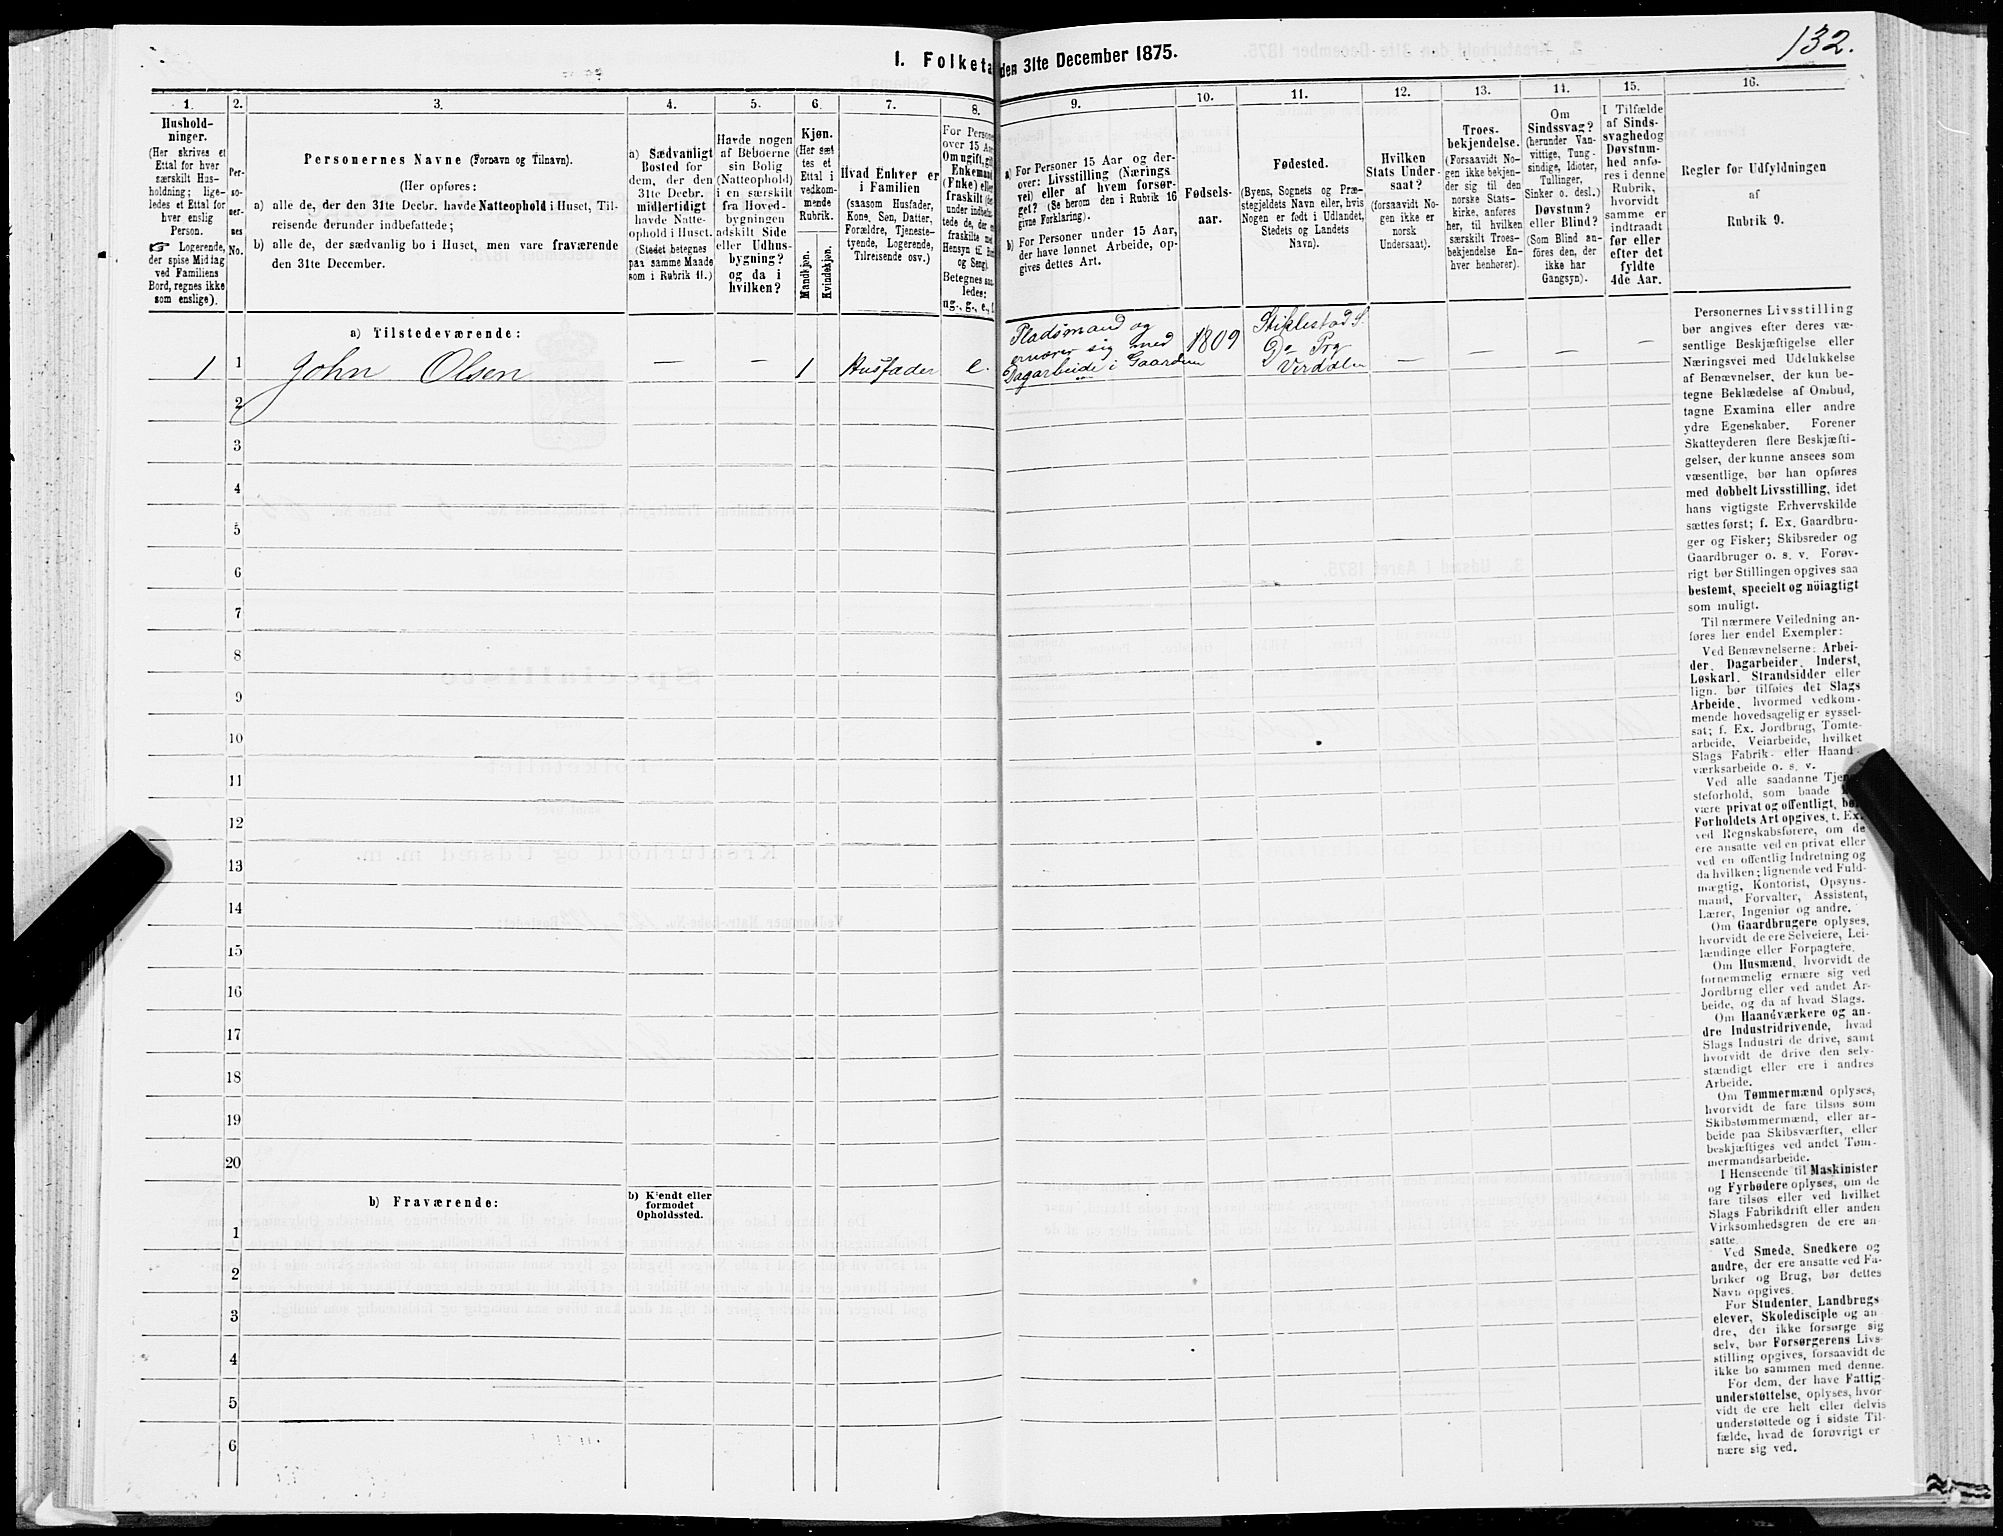 132.
I. Folketa den 31te December 1875.
1. 2. 3. 4. 5. 6. 7. 8. 9. 10. 11. 12. 13. 14. 15. 16.
Hushold-
ninger.
(Her skrives et
Ettal for hver
særskilt Hus-
holdning; lige-
ledes et Ettal for
hver enslig
Person.
☞ Logerende,
der spise Middag
ved Familiens
Bord, regnes ikke
som enslige).
Per-
so-
ner-
nes
No.
Personernes Navne (Fornavn og Tilnavn).
(Her opføres:
a) alle de, der den 31te Decbr. havde Natteophold i Huset, Til-
reisende derunder indbefattede;
b) alle de, der sædvanlig bo i Huset, men vare fraværende
den 31te December.
a) Sædvanligt
Bosted for
dem, der den
31te Decbr.
midlertidigt
havde Natte-
ophold i Huset.
(Stedet betegnes
paa samme Maade
som i Rubrik 11.)
Havde nogen
af Beboerne
sin Bolig
(Natteophold)
i en særskilt
fra Hoved-
bygningen
adskilt Side
eller Udhus-
bygning?
og da i
hvilken?
Kjøn.
(Her sæt
tes et
Ettal i
vedkom-
mende
Rubrik.
Mandkjøn.
Kvindekjøn.
Hvad Enhver er
i Familien
(saasom Husfader,
Kone, Søn, Datter,
Forældre, Tjeneste-
tyende, Logerende,
Tilreisende osv.)
For Persone
over 15 Aar
Om ugift, gift
Enkemand
(Fnke) eller
fraskilt (de
under indbefat
tede de, der er
fraskilte med
Hensyn til Bord
og Seng).
Betegnes saa
ledes:
ug., g., e., f.
a) For Personer 15 Aar og der-
over: Livsstilling (Nærings
vei) eller af hvem forsør-
get? (Se herom den i Rubrik 16
givne Forklaring).
b) For Personer under 15 Aar,
der have lønnet Arbeide, op-
gives dettes Art.
Fødsels-
aar.
Fødested.
(Byens, Sognets og Præ-
stegjeldets Navn eller, hvis
Nogen er født i Udlandet,
Stedets og Landets
Navn).
Hvilken
Stats Under-
saat?
(forsaavidt No-
gen ikke er
norsk
Undersaat).
Troes-
bekjendelse.
(Forsaavidt No-
gen ikke bekjen-
der sig til den
norske Stats-
kirke, anføres
her, til hvilken
særskilt Troes-
bekjendelse En-
hver henhører).
Om
Sindssvag?
(herunder Van-
vittige, Tung-
sindige, Idioter,
Tullinger,
Sinker o. desl.)
Døvstum?
eller Blind?
(Som Blind an-
føres den, der
ikke har
Gangsyn).
I Tilfælde
af Sinds-
svaghed og
Døvstum-
hed anfø-
res i denne
Rubrik,
hvorvidt
samme er
indtraadt
før eller
efter det
fyldte
4de Aar.
Regler for Udfyldningen
af
Rubrik 9.
a) Tilstedeværende:
1 1 John Olsen — — 1 Husfader e.
Pladsmand og
ernærer sig med
Dagarbeide i Gaarden
1809
Stiklestad S.
Do Prg
Verdalen
— — — —
2
3
4
5
6
7
8
9
10
11
12
13
14
15
16
17
18
19
20
b) Fraværende:
b) Kjendt eller
formodet
Opholdssted.
1
2
3
4
5
6
Personernes Livsstilling
bør angives efter deres væ-
sentlige Beskjæftigelse eller
Næringsvei med Udelukkelse
af Benævnelser, der kun be-
tegne Beklædelse af Ombud,
tagne Examina eller andre
ydre Egenskaber. Forener
Skatteyderen flere Beskjæfti-
gelser, der kunne ansees som
væsentlige, bør han opføres
med dobbelt Livsstilling, idet
hans vigtigste Erhvervskilde
sættes først; f. Ex. Gaardbru-
ger og Fisker; Skibsreder og
Gaardbruger o. s. v. Forøv-
rigt bør Stillingen opgives saa
bestemt, specielt og nöiagtigt
som muligt.
Til nærmere Veiledning an-
føres her endel Exempler:
Ved Benævnelserne: Arbei-
der, Dagarbeider, Inderst,
Løskarl, Strandsidder eller
lign. bør tilføies det Slags
Arbeide, hvormed vedkom-
mende hovedsagelig er syssel-
sat; f. Ex. Jordbrug, Tomte-
arbeide, Veiarbeide, hvilket
Slags Fabrik- eller Haand-
værksarbeide o. s. v.
Ved alle saadanne Tjene-
steforhold, som baade
være privat og offentligt, bør
Forholdets Art opgives, t. Ex.
ved Regnskabsførere, om de
ere ansatte ved en privat eller
ved en offentlig Indretning og
da hvilken; lignende ved Fuld-
mægtig, Kontorist, Opsyns-
mand, Forvalter, Assistent,
Lærer, Ingeniør og andre.
Om Gaardbrugere oplyses,
hvorvidt de ere Selveiere, Lei-
lændinge eller Forpagtere.
Om Husmænd, hvorvidt de
fornemmelig ernære sig ved
Jordbrug eller ved andet Ar-
beide, og da af hvad Slags.
Om Haandværkere og an-
dre Industridrivende, hvad
Slags Industri de drive, samt
hvorvidt de drive den selv-
stændigt eller ere i andres
Arbeide.
Om Tømmermænd oplyses,
hvorvidt de fare tilsøs som
Skibstømmermænd, eller ar-
beide paa Skibsværfter, eller
beskjæftiges ved andet Tøm-
mermandsarbeide.
I Henseende til Maskinister
og Fyrbødere oplyses, om de
fare tilsøs eller ved hvilket
Slags Fabrikdrift eller anden
Virksomhedsgren de ere an-
satte.
Ved Smede, Snedkere og
andre, der ere ansatte ved Fa-
briker og Brug, bør dettes
Navn opgives.
For Studenter, Landbrugs
elever, Skoledisciple og an-
dre, der ikke forsørge sig
selv, bør Forsørgerens Livs-
stilling opgives, forsaavidt de
ikke bo sammen med denne.
For dem, der have Fattig-
understøttelse, oplyses, hvor
vidt de ere helt eller delvis
understøttede og i sidste Til-
fælde, hvad de forøvrigt er
nære sig ved.